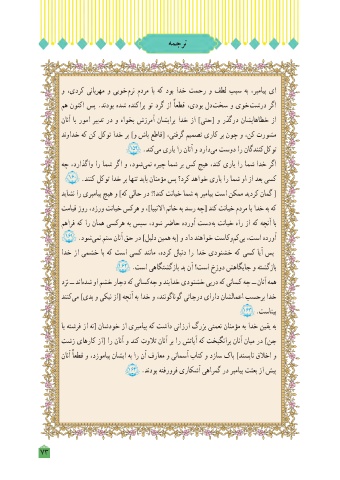 ترجمه
ای پیامبر، به سبب لطف و رحمت خدا بود که با مردم نرم‌خویی و مهربانی کردی، و
اگر درشت‌خوی و سخت‌دل بودی، قطعاً از گرد تو پراکنده شده بودند. پس اکنون هم
از خطاهایشان درگذر و [حتی] از خدا برایشان آمرزش بخواه و در تدبیر امور با آنان
مشورت کن، و چون بر کاری تصمیم گرفتی، [قاطع باش و] بر خدا توکل کن که خداوند
توکل‌کنندگان را دوست می‌دارد و آنان را یاری می‌کند. ۱۵۹
اگر خدا شما را یاری کند، هیچ کس بر شما چیره نمی‌شود، و اگر شما را واگذارد، چه
کسی بعد از او شما را یاری خواهد کرد؟ پس مؤمنان باید تنها بر خدا توکل کنند. ۱۶۰
[ گمان کردید ممکن است پیامبر به شما خیانت کند؟! در حالی که] و هیچ پیامبری را نشاید
که به خدا یا مردم خیانت کند [چه رسد به خاتم الانبیا]، و هرکس خیانت ورزد، روز قیامت
با آنچه که از راه خیانت به‌دست آورده حاضر شود، سپس به هرکسی همان را که فراهم
آورده است، بی‌کم‌وکاست خواهند داد و [به همین دلیل] در حق آنان ستم نمی‌شود. ۱۶۱
پس آیا کسی که خشنودی خدا را دنبال کرده، مانند کسی است که با خشمی از خدا
بازگشته و جایگاهش دوزخ است؟ آن بد بازگشتگاهی است. ۱۶۲
همه آنان ــ چه کسانی که درپی خشنودی خدایند و چه‌کسانی که دچار خشم او شده‌اند ــ نزد
خدا برحسب اعمالشان دارای درجاتی گوناگونند، و خدا به آنچه [از نیکی و بدی] می‌کنند
بیناست. ۱۶۳
به یقین خدا به مؤمنان نعمتی بزرگ ارزانی داشت که پیامبری از خودشان [نه از فرشته یا
جن] در میان آنان برانگیخت که آیاتش را بر آنان تلاوت کند و آنان را [از کارهای زشت
و اخلاق ناپسند] پاک سازد و کتاب آسمانی و معارف آن را به ایشان بیاموزد، و قطعاً آنان
پیش از بعثت پیامبر در گمراهی آشکاری فرورفته بودند. ۱۶۴
۷۳